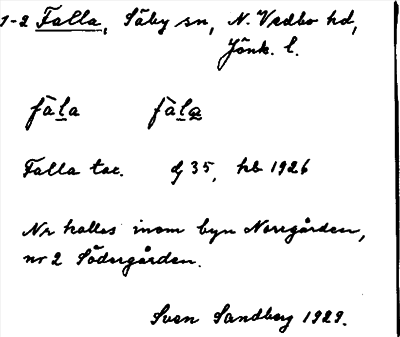 1-2 Falla, Säby sn, N. Vedbo hd,
Jönk. l.
fàla fàla
Falla tar. dj 35, hb 1926
Nr kallas inom byn Norrgården,
nr 2 Södergården.
Sven Sandberg 1929.